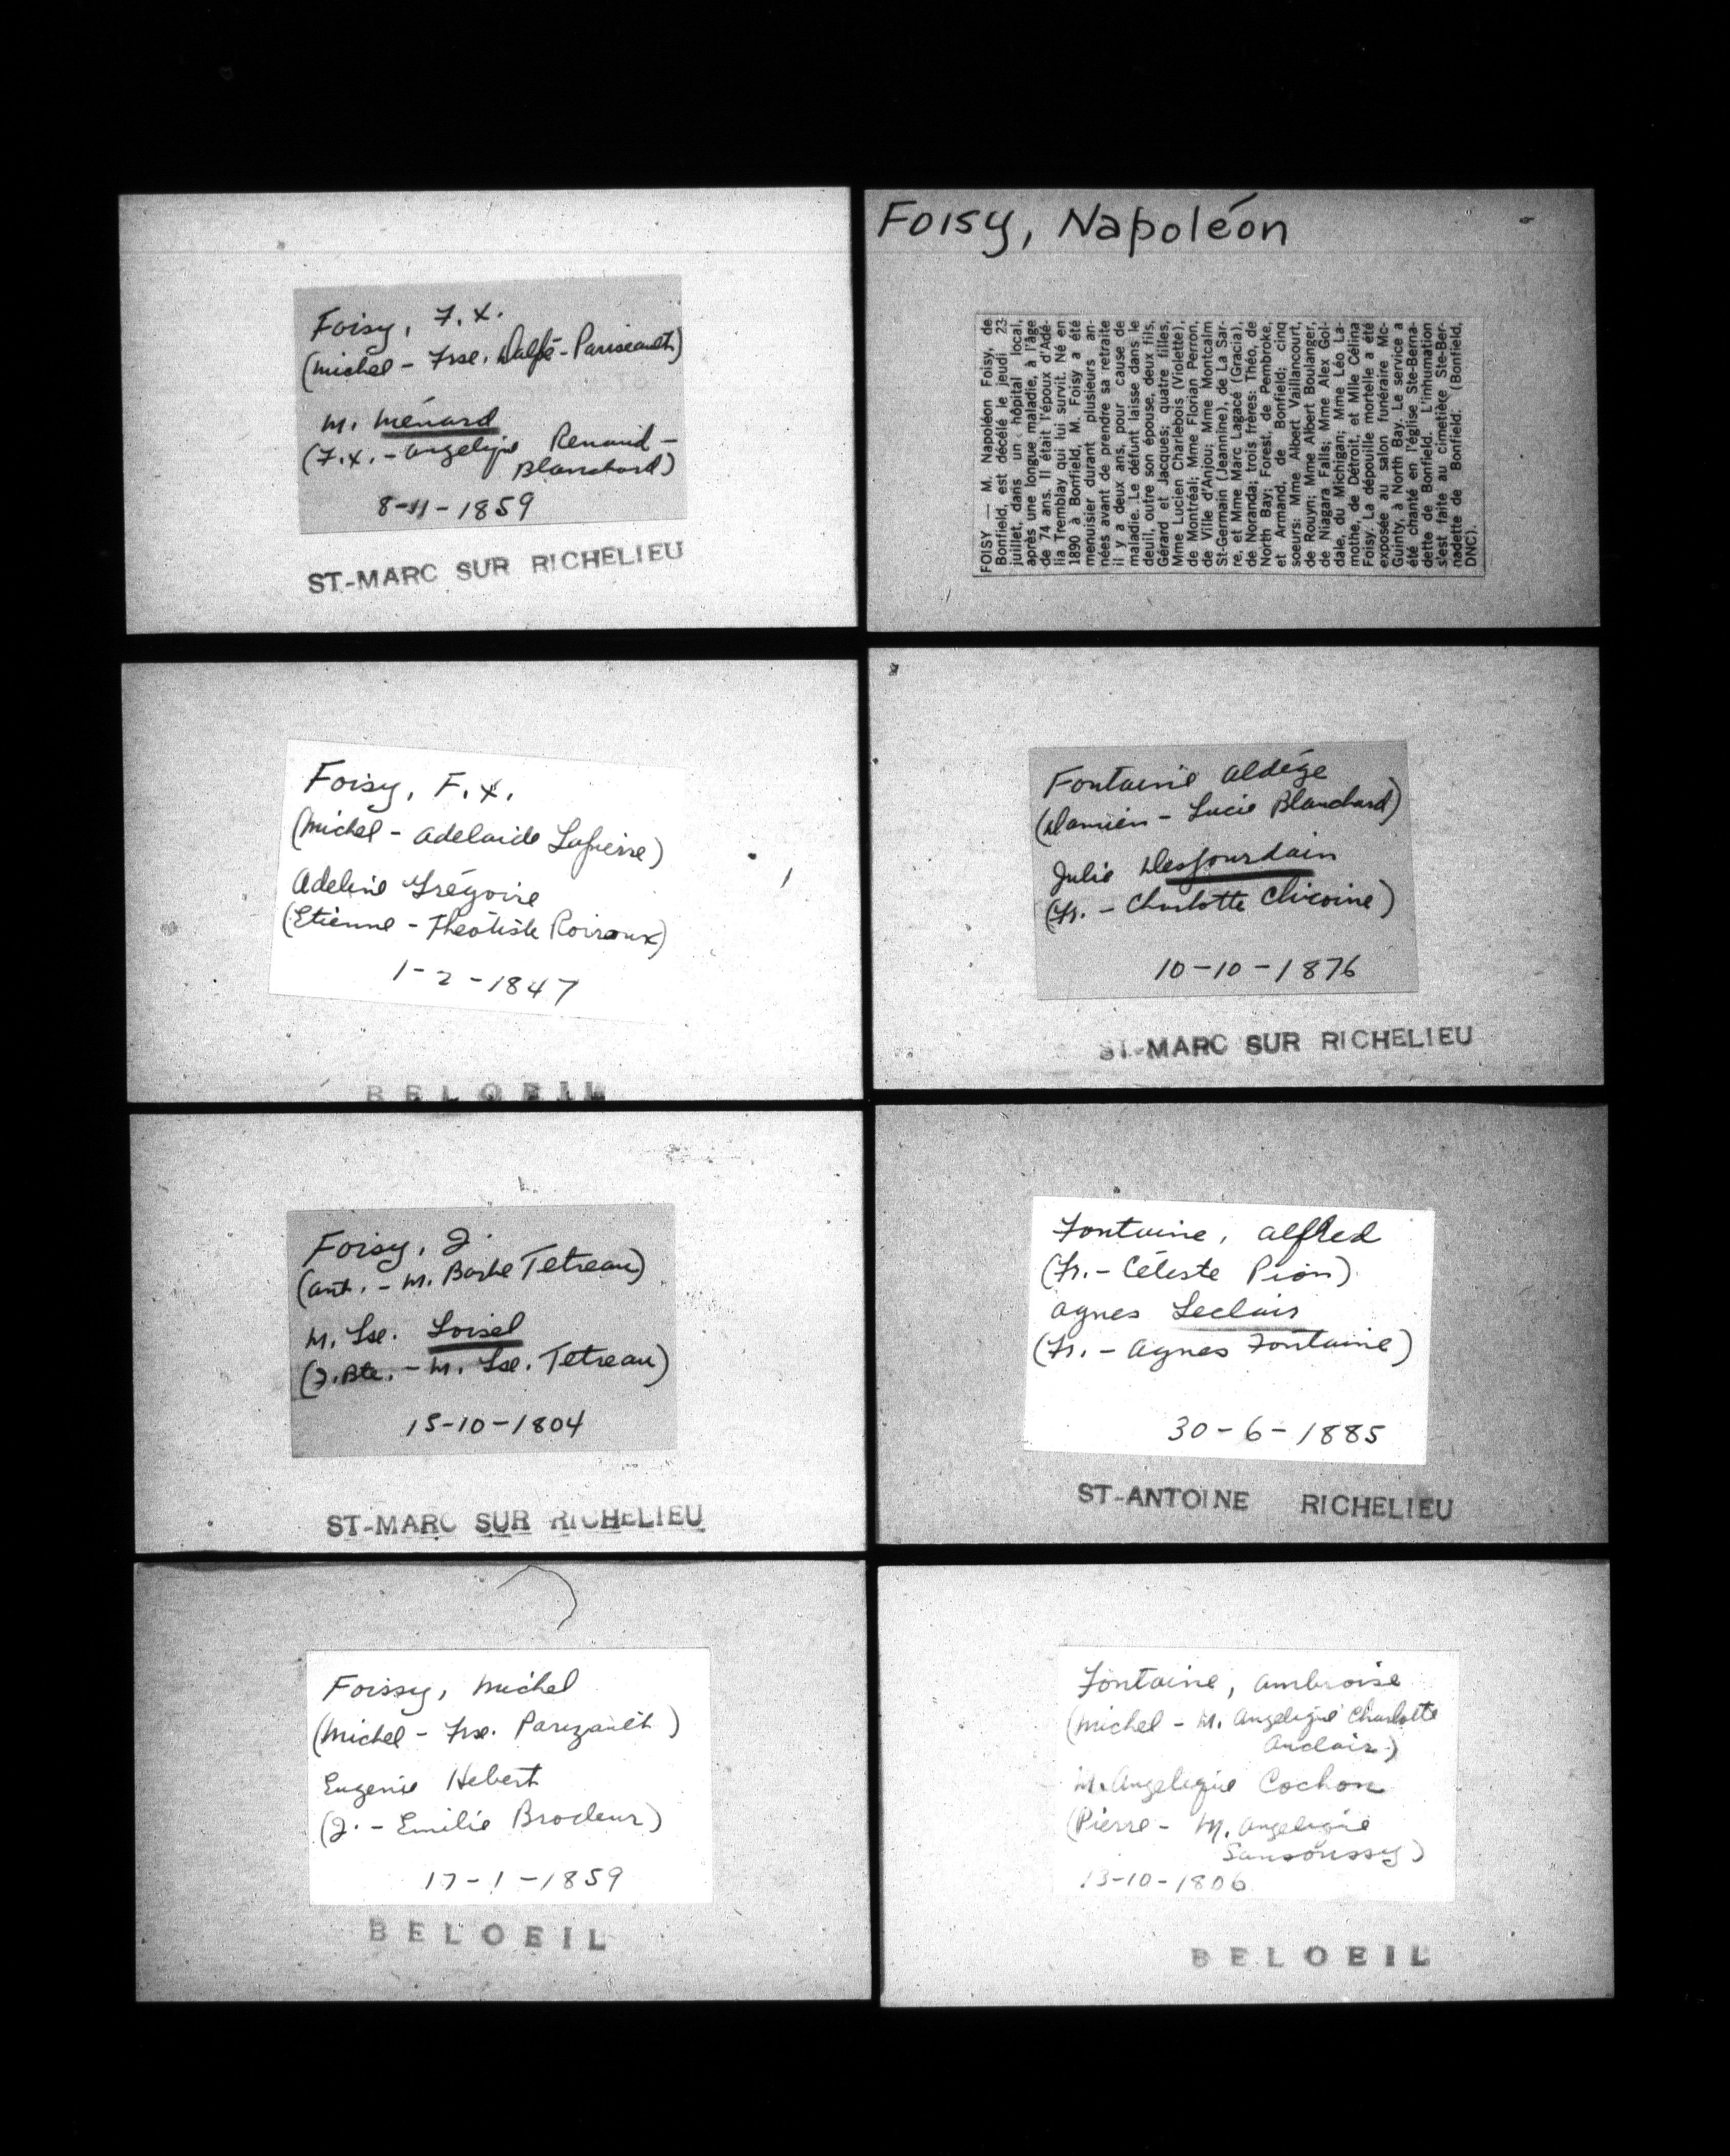 Foisy, F.X.
(Michel - Frse. Dalpé-Pariseault)
M. Ménard
(F.X. - Angelique Renaud -
Blanchard)
8-11-1859
ST-MARC SUR RICHELIEU
Foisy, F.X.
(Michel - Adelaide Lapierre)
Adeline Grégoire
(Etienne - Théotiste Roiroux)
1-2-1847
BELOEIL
Foisy, J.
(Ant. - M. Barbe Tetreau)
M. Lse. Loisel
(J.Bte. - M. Lse. Tetreau)
15-10-1804
ST-MARC SUR RICHELIEU
Foissy, Michel
(Michel - Frse. Parizault)
Eugenie Hebert
(J. - Emilie Brodeur)
17-1-1859
BELOEIL
Foisy, Napoléon
FOISY — M. Napoléon Foisy, de
Bonfield, est décélé le jeudi 23
juillet, dans un hôpital local,
après une longue maladie, à l'âge
de 74 ans. Il était l'époux d'Adé-
lia Tremblay qui lui survit. Né en
1890 à Bonfield, M. Foisy a été
menuisier durant plusieurs an-
nées avant de prendre sa retraite
il y a deux ans, pour cause de
maladie. Le défunt laisse dans le
deuil, outre son épouse, deux fils,
Gérard et Jacques; quatre filles,
Mme Lucien Charlebois (Violette),
de Montréal; Mme Florian Perron,
de Ville d'Anjou; Mme Montcalm
St-Germain (Jeannine), de La Sar-
re, et Mme Marc Lagacé (Gracia),
de Noranda; trois frères: Théo, de
North Bay; Forest, de Pembroke,
et Armand, de Bonfield; cinq
soeurs: Mme Albert Vaillancourt,
de Rouyn; Mme Albert Boulanger,
de Niagara Falls; Mme Alex Gol-
dale, du Michigan; Mme Léo La-
mothe, de Détroit, et Mlle Célina
Foisy. La dépouille mortelle a été
exposée au salon funéraire Mc-
Guinty, à North Bay. Le service a
été chanté en l'église Ste-Berna-
dette de Bonfield. L'inhumation
s'est faite au cimetière Ste-Ber-
nadette de Bonfield. (Bonfield,
DNC).
Fontaine Aldége
(Damien - Lucie Blanchard)
Julie Desjourdain
(Fr. - Charlotte Chicoine)
10-10-1876
ST-MARC SUR RICHELIEU
Fontaine, Alfred
(Fr. - Céleste Pion)
Agnes Leclair
(Fr. - Agnes Fontaine)
30-6-1885
ST-ANTOINE RICHELIEU
Fontaine, Ambroise
(Michel - M. Angelique Charlotte
Auclair)
M. Angelique Cochon
(Pierre - M. Angelique
Sansoussy)
13-10-1806
BELOEIL